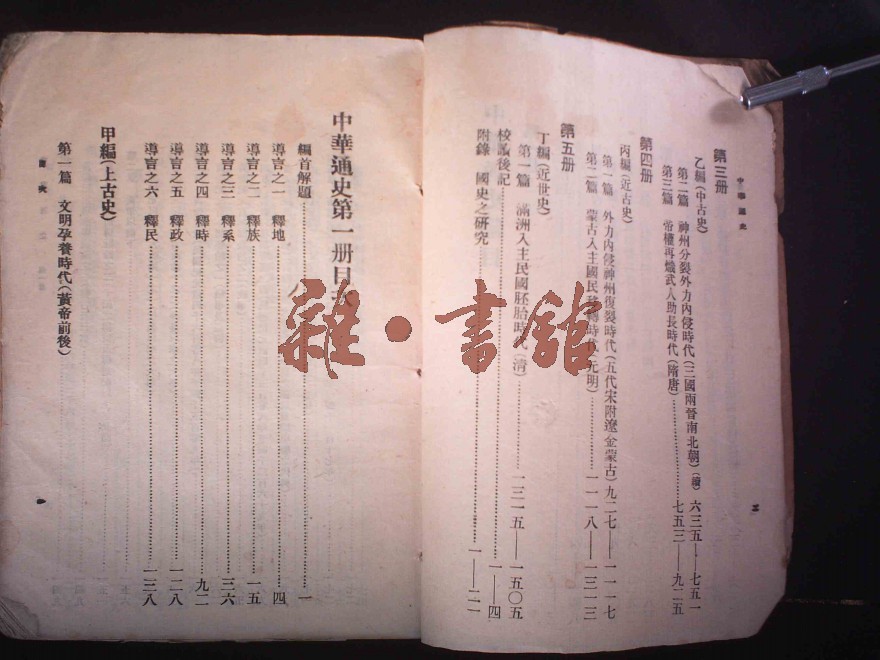 中華通史
第三册
乙編(中古史)
第二篇 神州分裂外力內侵時代(三國兩晉南北朝)(續)六三五——七五一
第三篇 帝權再熾武人助長時代(隋唐)……七五三——九二五
第四册
丙編(近古史)
第一篇 外力內侵神州復裂時代(五代宋附遼金蒙古)九二七——一一一七
第二篇 蒙古入主國民 時代(元明)……一一一八——一三一三
第五册
丁編(近世史)
第一篇 滿洲入主民國胚胎時代(清)……一三一五——一五〇五
校讎後記……一——四
附錄 國史之研究……一——二一
二
中華通史第一册目
編首解題……一
導言之一 釋地……四
導言之二 釋族……一五
導言之三 釋系……三六
導言之四 釋時……九二
導言之五 釋政……一二八
導言之六 釋民……一三八
甲編(上古史)
第一篇 文明孕養時代(黃帝前後)
目次
一
雜·書館